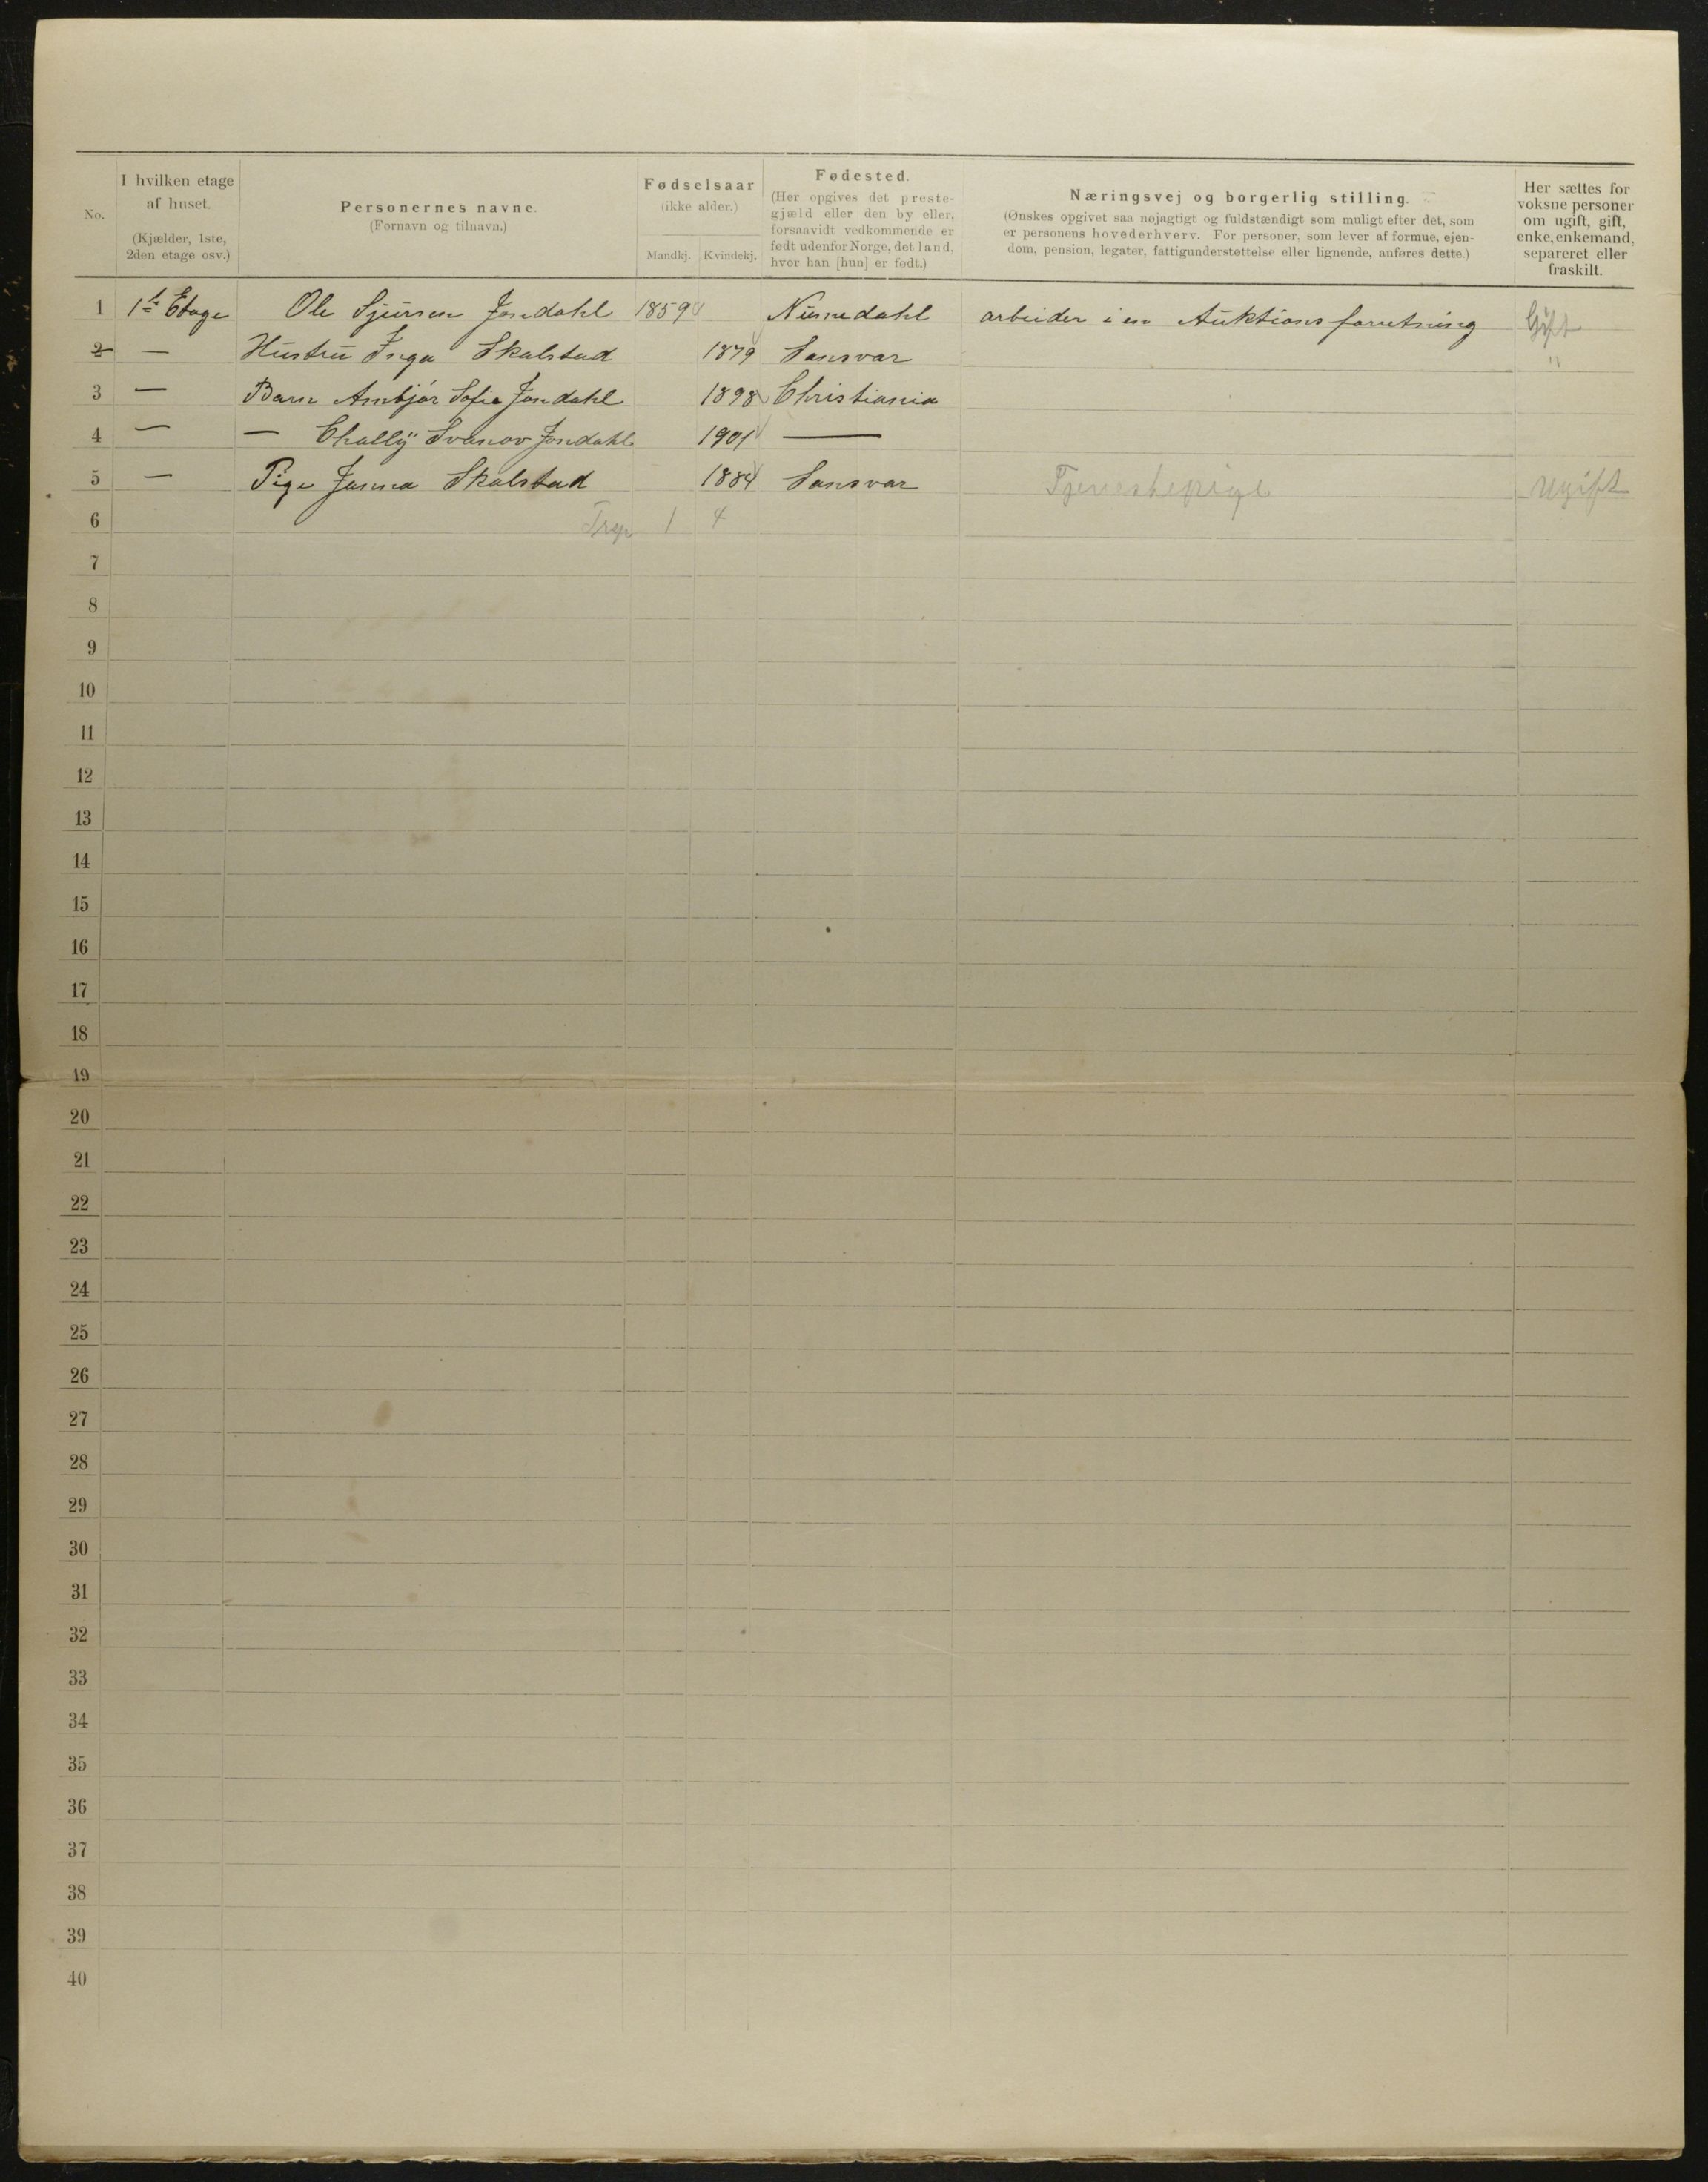 No.
I hvilken etage af huset.
(Kjælder, 1ste, 2den etage osv.)
Personernes navne.
(Fornavn og tilnavn.)
Fødselsaar
(ikke alder.)
Mandkj. Kvindekj.
Fødested.
(Her opgives det preste-
gjæld eller den by eller,
forsaavidt vedkommende er
født udenfor Norge, det land,
hvor han [hun] er født.)
Næringsvej og borgerlig stilling.
(Ønskes opgivet saa nøjagtigt og fuldstændigt som muligt efter det, som
er personens hovederhverv. For personer, som lever af formue, ejen-
dom, pension, legater, fattigunderstøttelse eller lignende, anføres dette.)
Her sættes for
voksne personer
om ugift, gift,
enke, enkemand,
separeret eller
fraskilt.
1 1ste Etage Ole Sjursen Jondahl 1859 Numedahl arbeider i en Auktionsforretning Gift
2 — Hustru Inga Skalstad 1879 Sansvar "
3 — Barn Ambjør Sofie Jondahl 1898 Christiania
4 — — Chally Svanov Jondahl 1901 —
5 — Pige Janna Skalstad 1884 Sansvar Tjenestepige Ugift
6 1 4
7
8
9
10
11
12
13
14
15
16
17
18
19
20
21
22
23
24
25
26
27
28
29
30
31
32
33
34
35
36
37
38
39
40